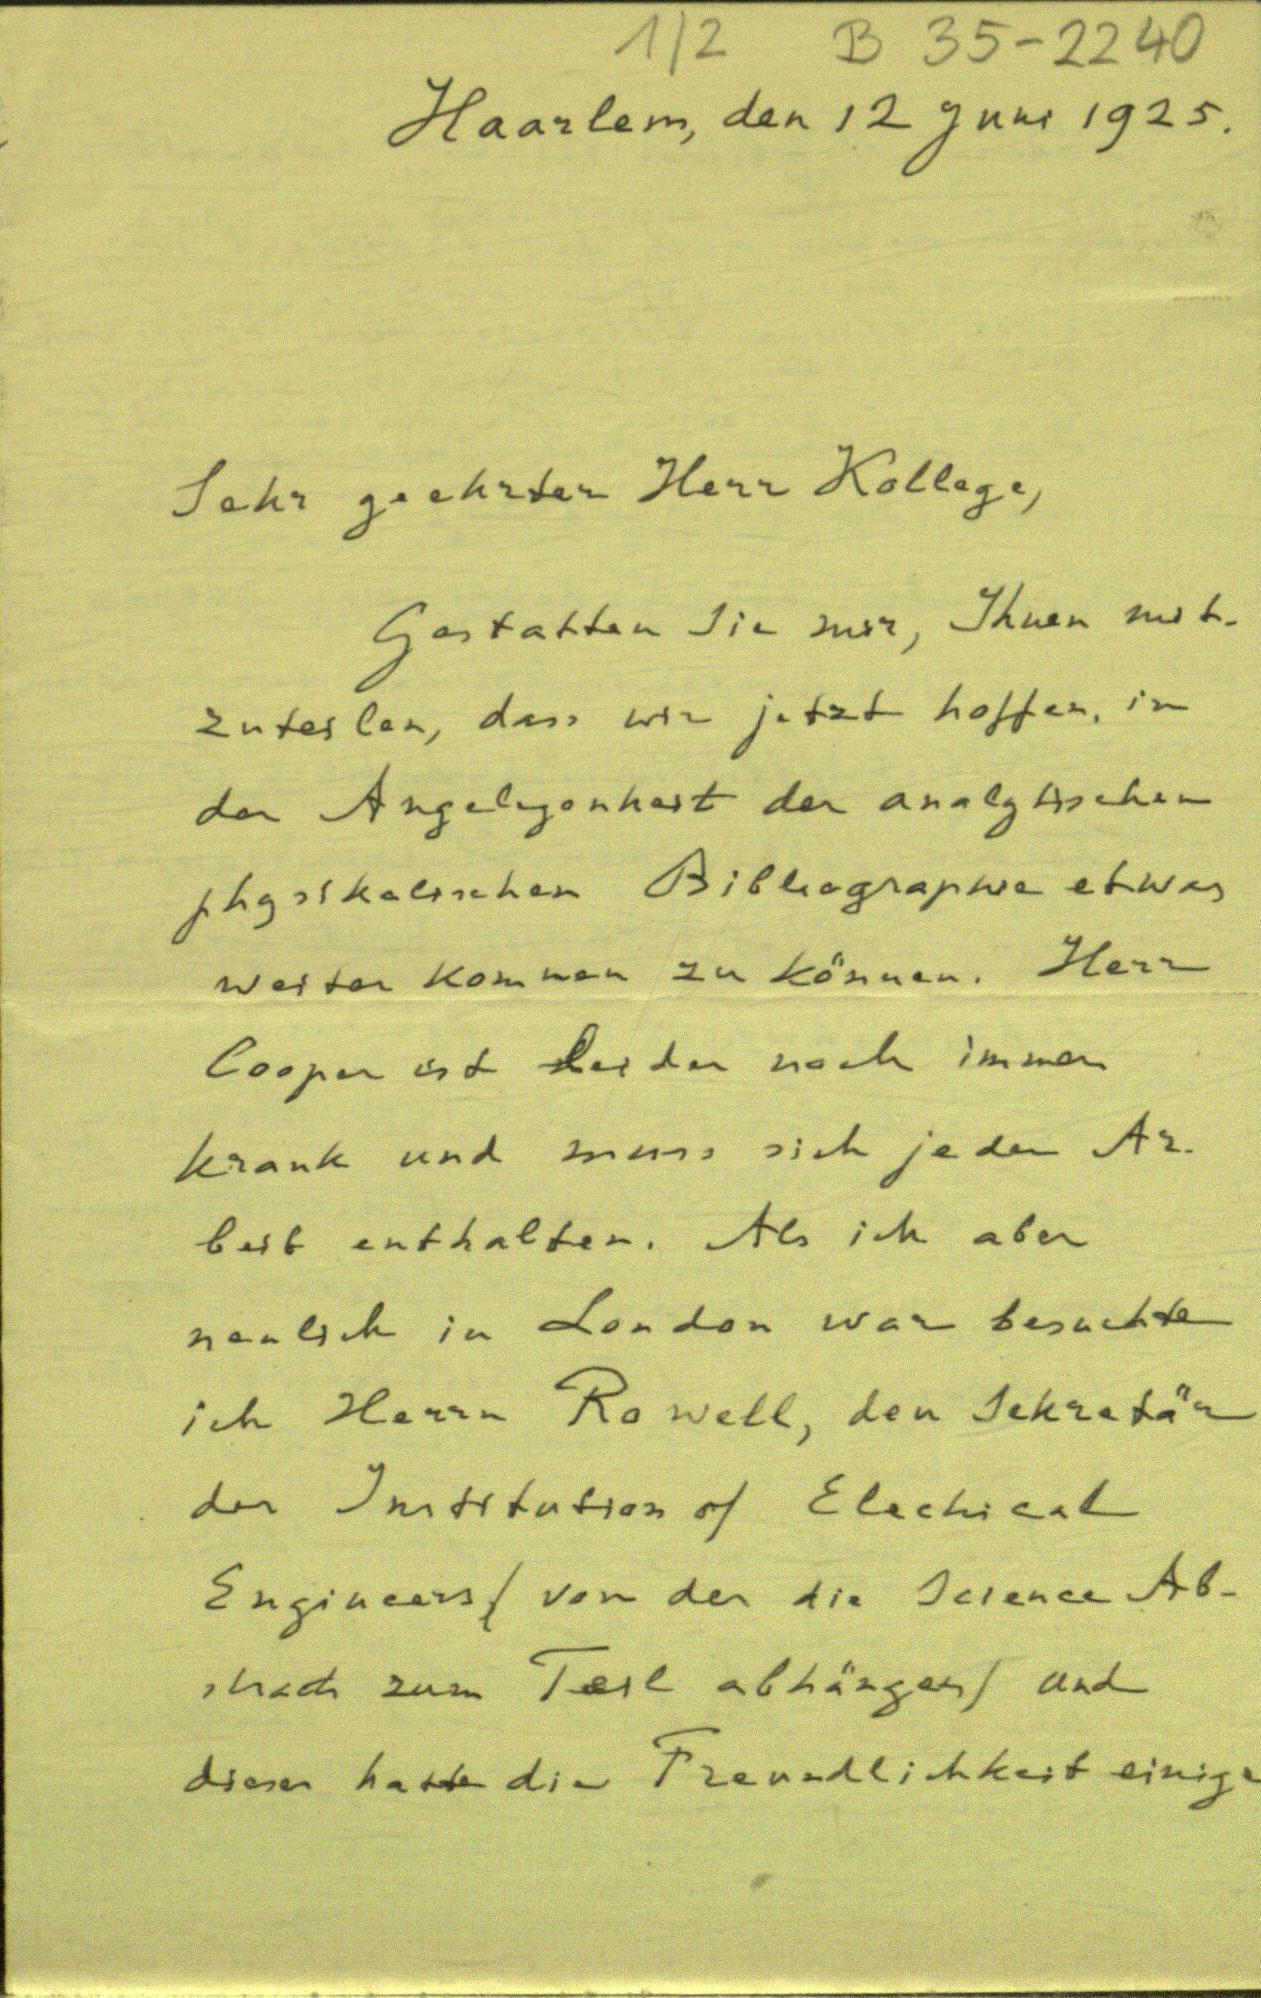 1/2 B 35-2240
Haarlem, den 12 Juni 1925.
Sehr geehrter Herr Kollege,
Gestatten Sie mir, Ihnen mit-
zuteilen, dass wir jetzt hoffen, in
der Angelegenheit der analytischen
physikalischen Bibliographie etwas
weiter kommen zu können. Herr
Cooper ist leider noch immer
krank und muss sich jeder Ar-
beit enthalten. Als ich aber
neulich in London war besuchte
ich Herrn Rowell, den Sekretär
der Institution of Electrical
Engineers (von der die Science Ab-
stracts zum Teil abhängen) und
dieser hatte die Freundlichkeit einige